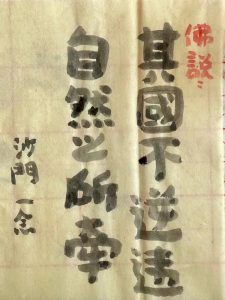 佛説
其國不逆違
自然之所牽
沙門一念